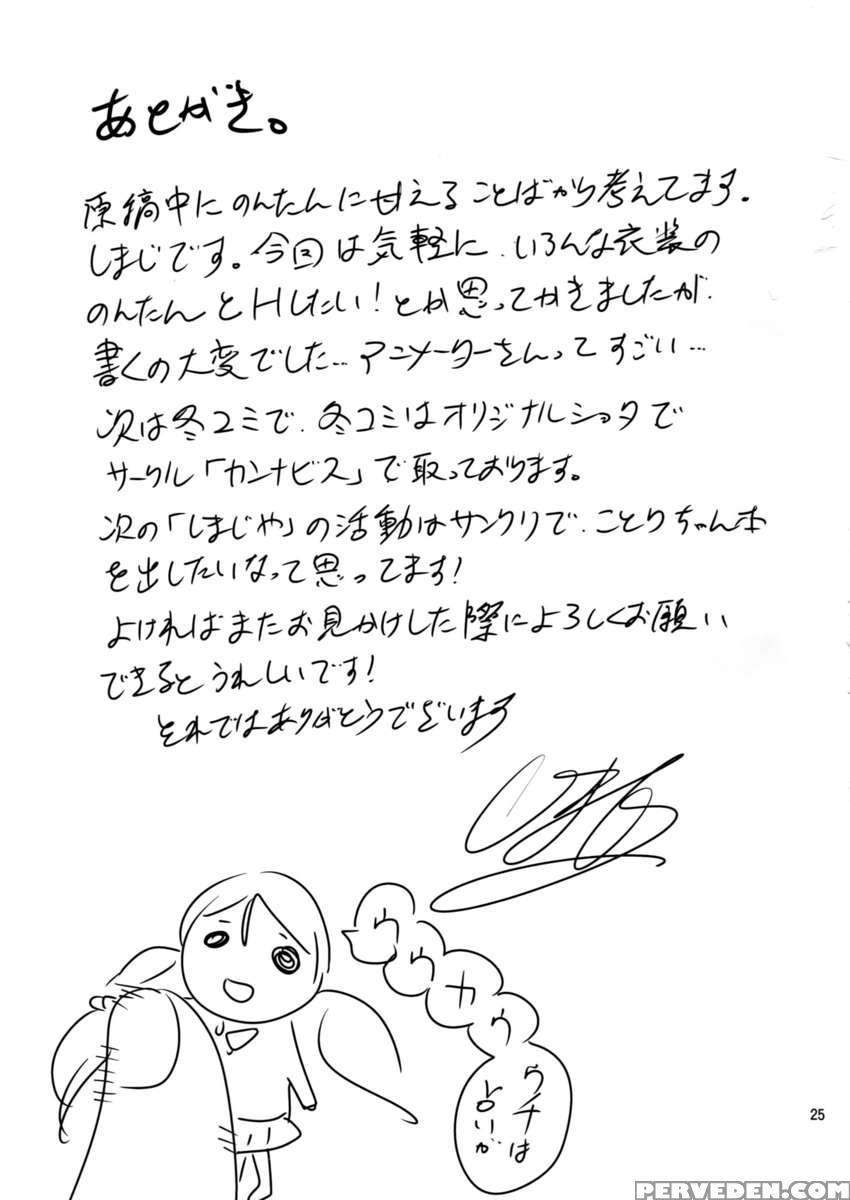 あとがき。
原稿中にのんたんに甘えることばかり考えてます。
しまじです。今回は気軽に、いろんな衣装の
のんたんとHしたい！とか思ってかきましたが、
書くの大変でした…アニメーターさんってすごい…
次は冬コミで、冬コミはオリジナルショタで
サークル「カンナビス」で取っております。
次の「しまじや」の活動はサンクリで、ことりちゃん本
を出したいなって思ってます！
よければまたお見かけした際によろしくお願い
できるとうれしいです！
それではありがとうございます
ウウカウ
ウチは
占いが
25
PERVEDEN.COM